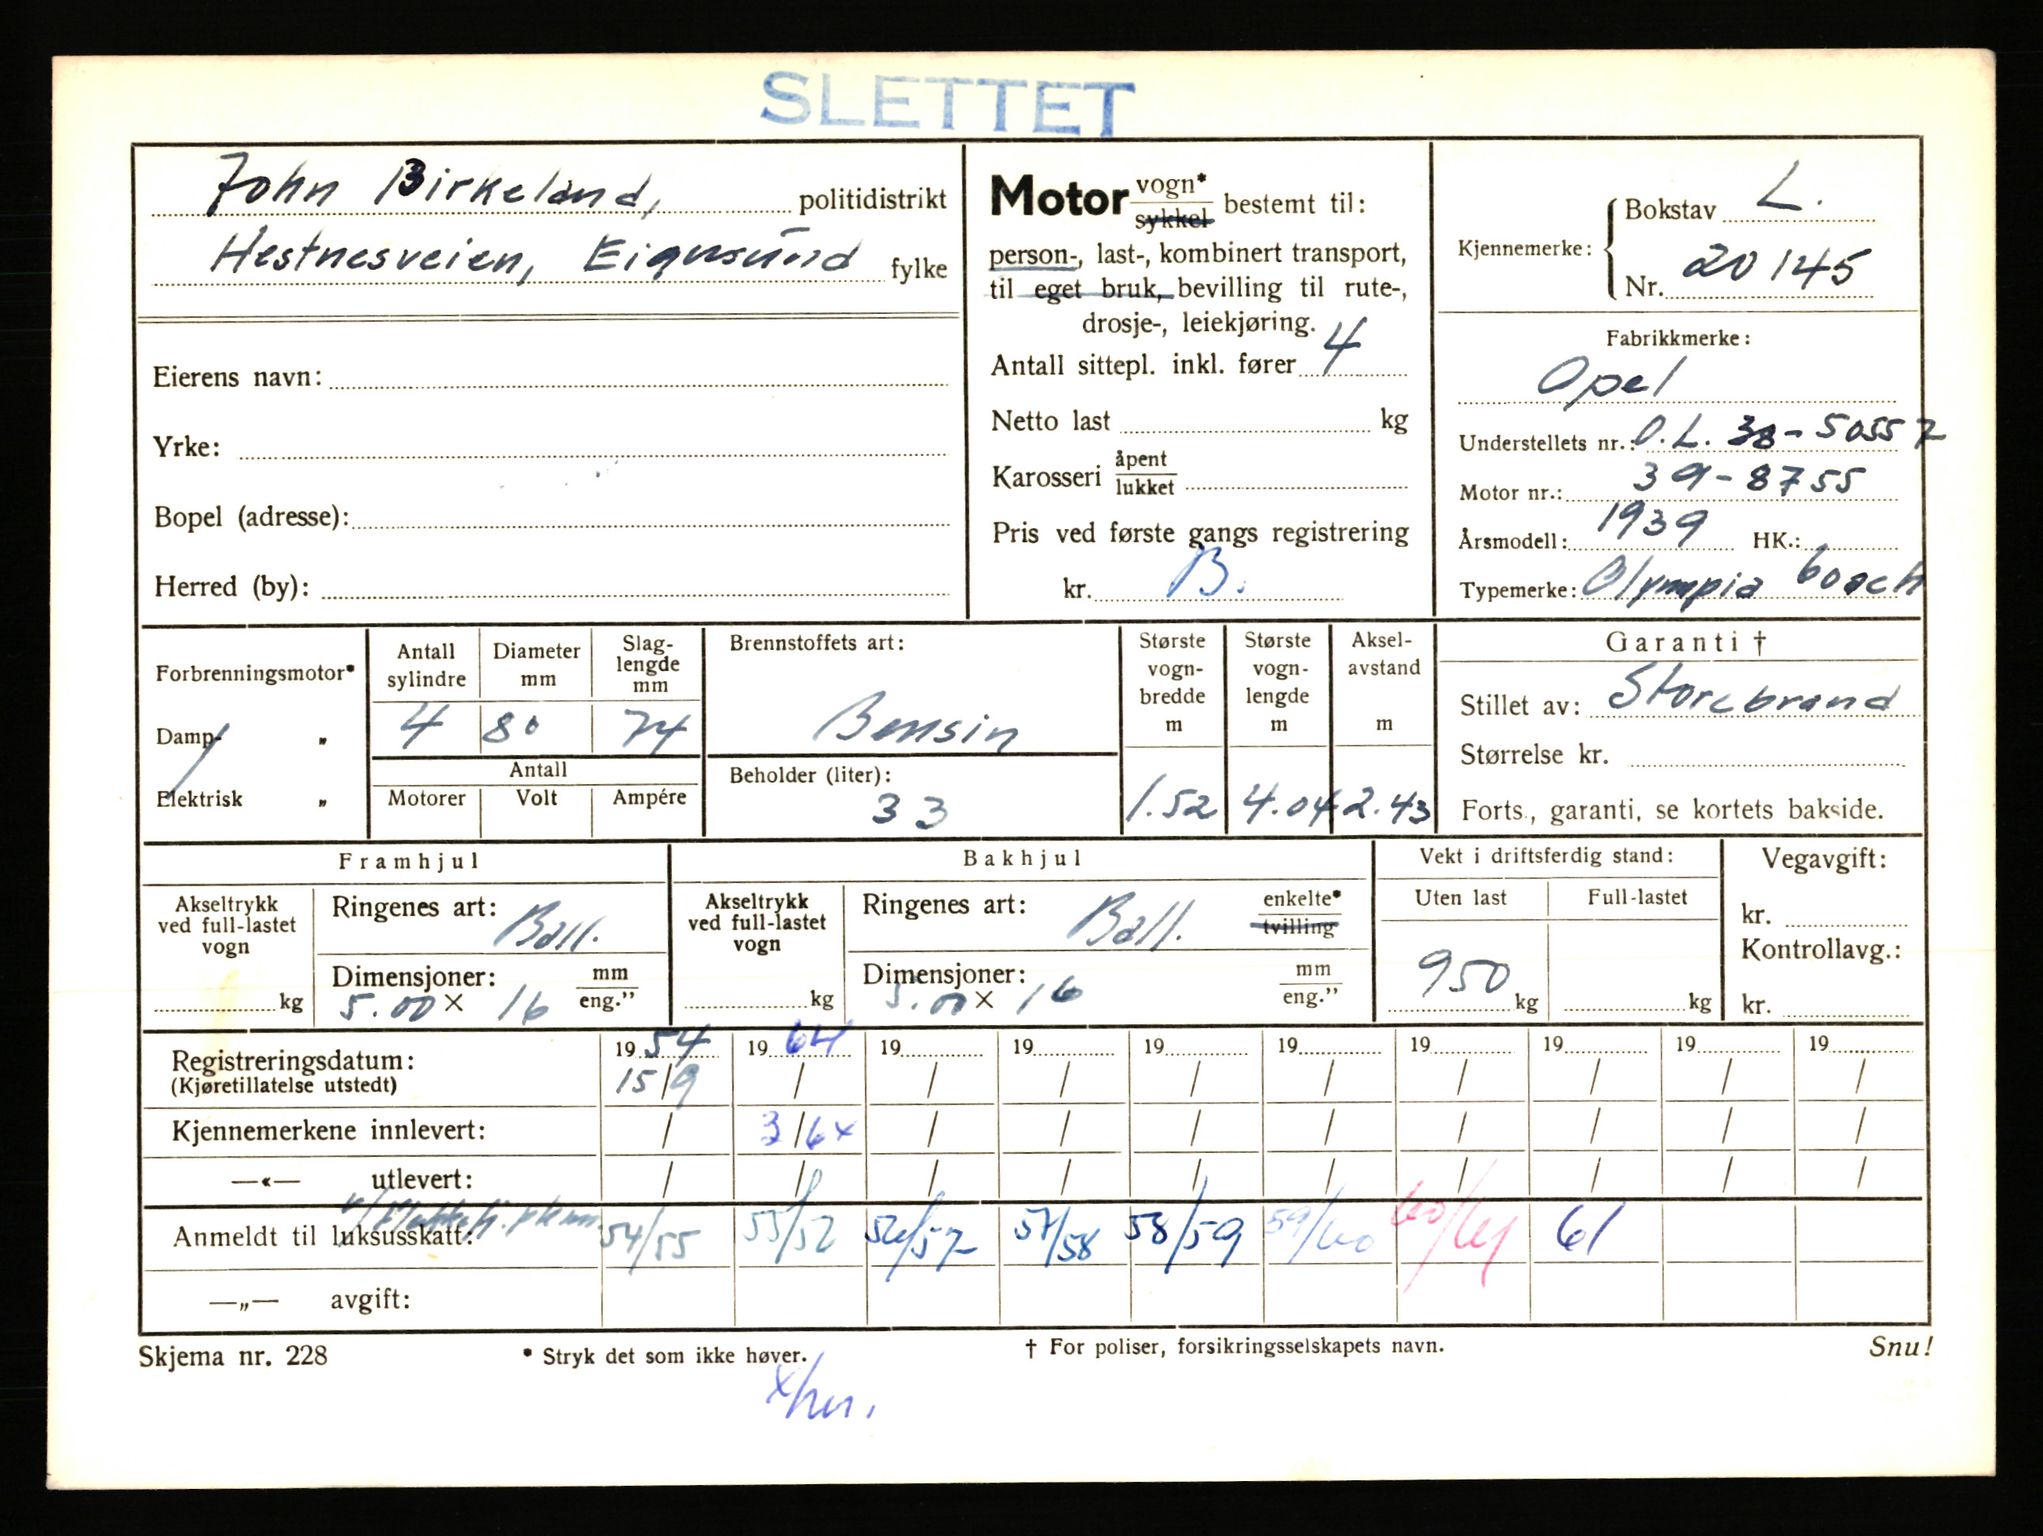 SLETTET
John Birkeland, politidistrikt
Hestnesveien, Eigersund fylke
Eierens navn:
Yrke:
Bopel (adresse):
Herred (by):
Motor vogn* sykkel bestemt til:
person-, last-, kombinert transport,
til eget bruk, bevilling til rute-,
drosje-, leiekjøring.
Antall sittepl. inkl. fører 4
Netto last kg
Karosseri åpent lukket
Pris ved første gangs registrering
kr. B.
Kjennemerke: Bokstav L.
Nr. 20145
Fabrikkmerke:
Opel
Understellets nr.: O.L. 38-50557
Motor nr.: 39-8755
Årsmodell: 1939 HK.:
Typemerke: Olympia coach
Forbrenningsmotor*
Damp- „
Elektrisk „
Antall sylindre Diameter mm Slag-lengde mm
4 80 74
Antall
Motorer Volt Ampére
Brennstoffets art:
Bensin
Beholder (liter):
33
Største vogn-bredde m Største vogn-lengde m Aksel-avstand m
1.52 4.04 2.43
Garanti †
Stillet av: Storebrand
Størrelse kr.
Forts., garanti, se kortets bakside.
Framhjul
Akseltrykk ved full-lastet vogn
kg
Ringenes art: Ball.
Dimensjoner: mm eng.”
5.00 x 16
Bakhjul
Akseltrykk ved full-lastet vogn
kg
Ringenes art: Ball. enkelte* tvilling
Dimensjoner: mm eng.”
5.00 x 16
Vekt i driftsferdig stand:
Uten last Full-lastet
950 kg kg
Vegavgift:
kr.
Kontrollavg.:
kr.
Registreringsdatum: 19 54 19 64 19 19 19 19 19 19 19 19
(Kjøretillatelse utstedt) 15/9 / / / / / / / / /
Kjennemerkene innlevert: / 3/6x / / / / / / / /
—«— utlevert: / / / / / / / / / /
Anmeldt til luksusskatt: 54/55 55/52 56/57 57/58 58/59 59/60 60/61 61
—„— avgift:
Skjema nr. 228 * Stryk det som ikke høver. † For poliser, forsikringsselskapets navn. Snu!